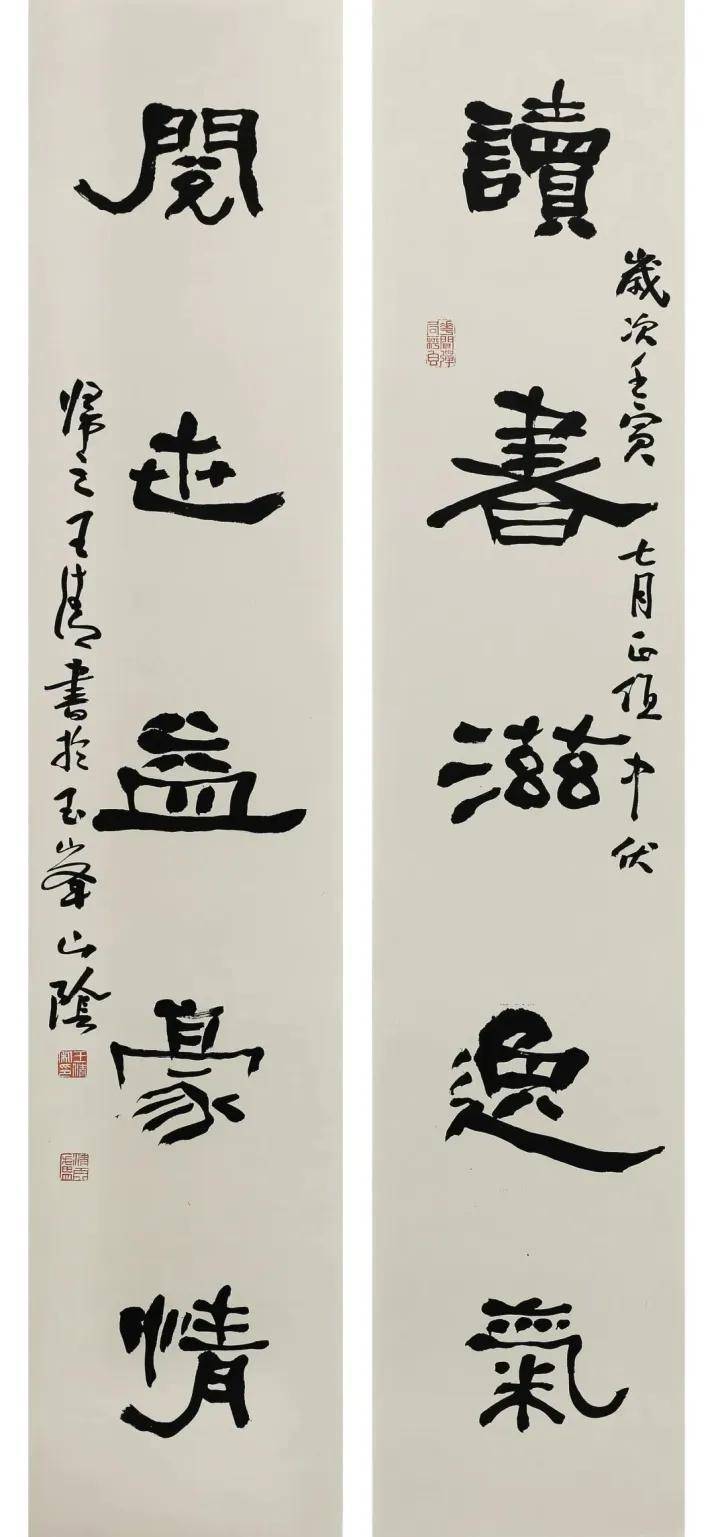 讀書滋逸氣
歲次壬寅七月正值中伏
閱世益豪情
歸之王清書於玉峯山陰